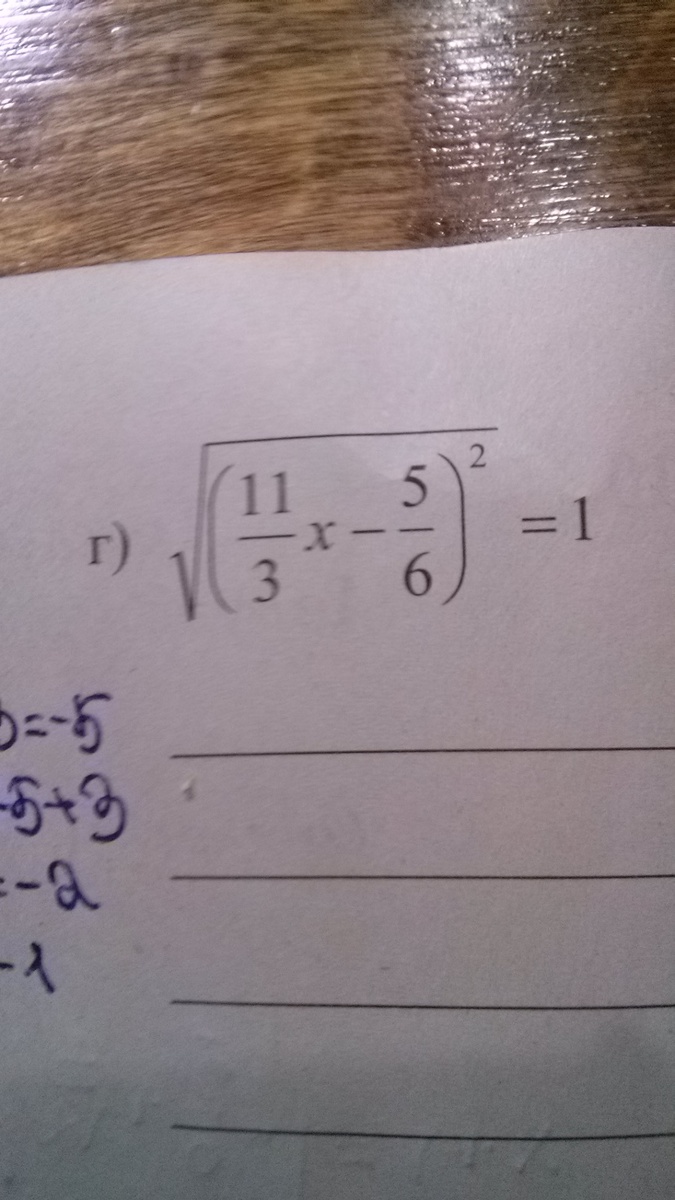 г) √((11/3)x − 5/6)² = 1
=-5
-5+3
=-2
-1